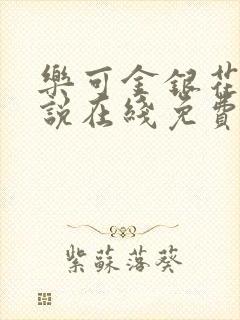 樂可金銀花
說在綫免費
紫蘇落葵